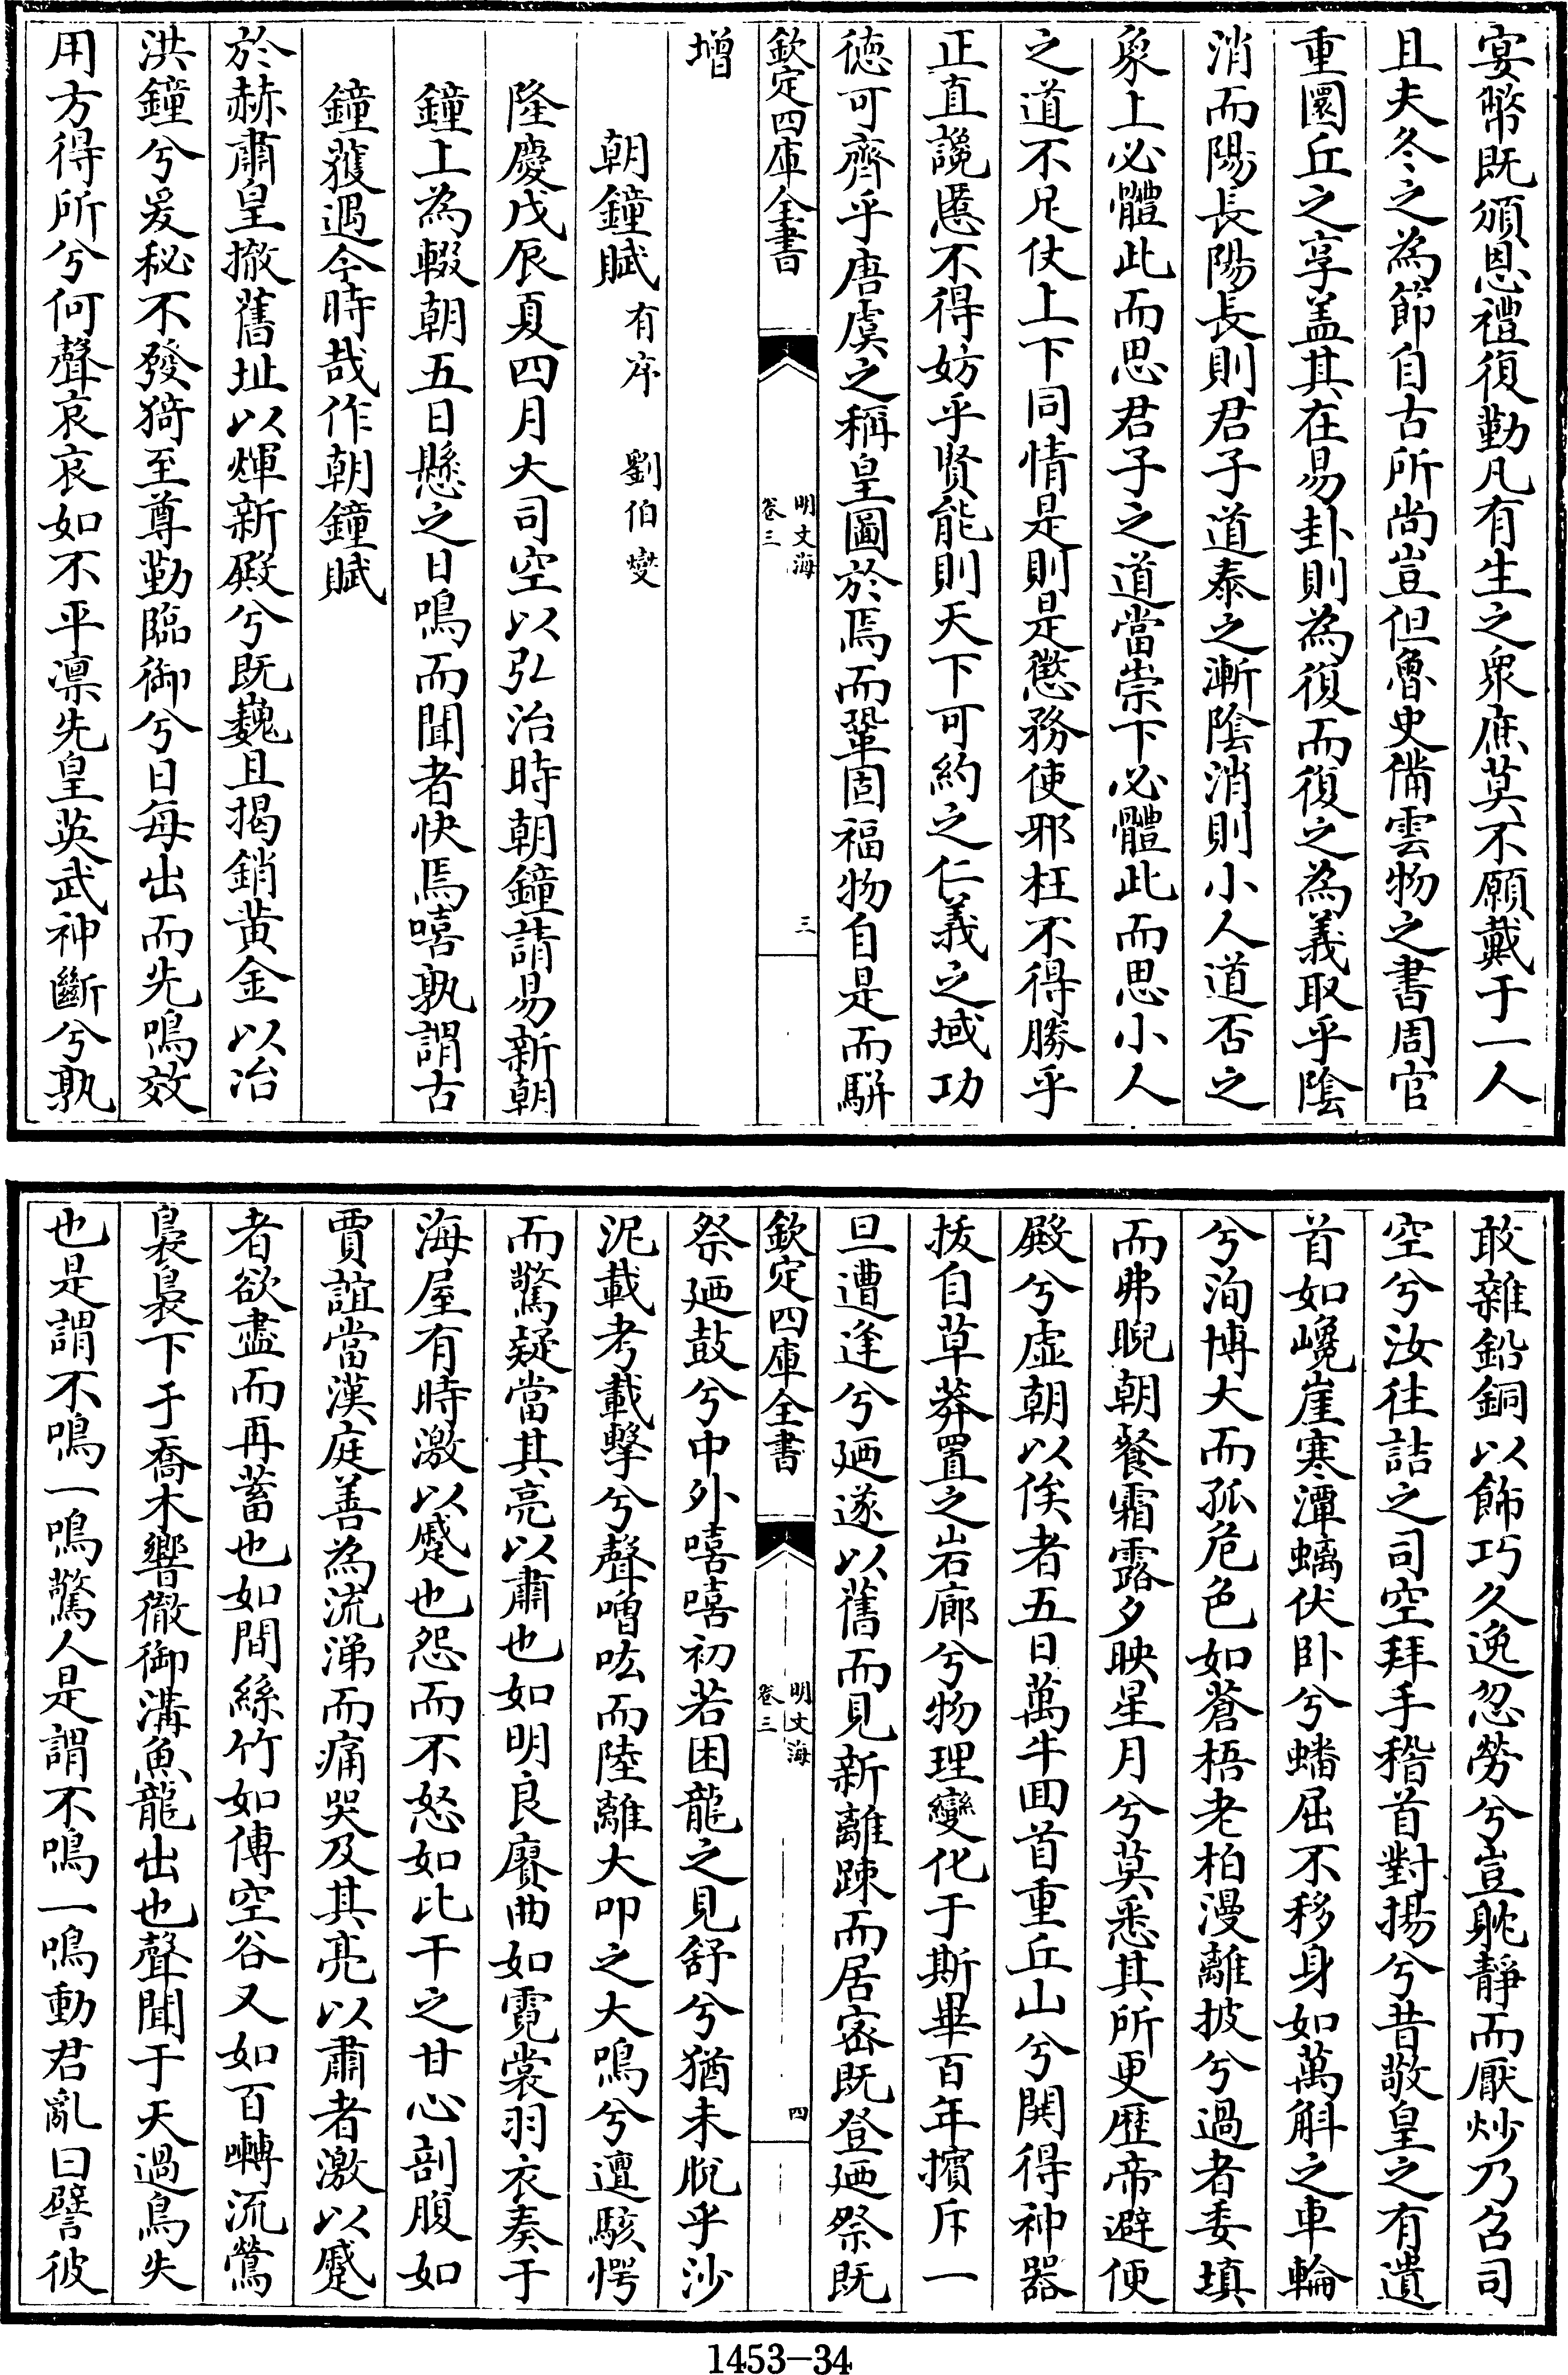 宴幣既頒恩禮復勤凡有生之衆庶莫不願戴于一人
且夫冬之為節自古所尚豈但魯史備雲物之書周官
重圜丘之享盖其在易卦則為復而復之為義取乎陰
消而陽長陽長則君子道泰之漸陰消則小人道否之
象上必體此而思君子之道當崇下必體此而思小人
之道不足仗上下同情是則是懲務使邪枉不得勝乎
正直讒慝不得妨乎賢能則天下可約之仁義之域功
徳可齊乎唐虞之稱皇圖於焉而鞏固福物自是而駢
欽定四庫全書
明文海
卷三
三
增
朝鐘賦有序 劉伯燮
隆慶戊辰夏四月大司空以弘治時朝鐘請易新朝
鐘上為輟朝五日懸之日鳴而聞者快焉嘻孰謂古
鐘蒦遇今時哉作朝鐘賦
於赫肅皇撤舊址以煇新殿兮既巍且揭銷黄金以冶
洪鐘兮爰秘不發猗至尊勤臨御兮日每出而先鳴效
用方得所兮何聲哀哀如不平凛先皇英武神斷兮孰
敢雜鉛銅以飾巧久逸忽勞兮豈躭靜而厭炒乃召司
空兮汝往詰之司空拜手稽首對揚兮昔敬皇之有遺
首如巉崖寒潭螭伏卧兮蟠屈不移身如萬斛之車輪
兮洵博大而孤危色如蒼梧老柏漫離披兮過者委填
而弗睨朝餐霜露夕映星月兮莫悉其所更歴帝避便
殿兮虚朝以俟者五日萬牛囬首重丘山兮閧得神器
拔自草莽置之岩廊兮物理變化于斯畢百年擯斥一
旦遭逢兮廼遂以舊而見新離踈而居宻既登廼祭既
欽定四庫全書
明文海
卷三
四
祭廼鼓兮中外嘻嘻初若困龍之見舒兮猶未脫乎沙
泥載考載擊兮聲噌吰而陸離大叩之大鳴兮邅駭愕
而驚疑當其亮以肅也如明良賡曲如霓裳羽衣奏于
海屋有時激以蹙也怨而不怒如比干之甘心剖腹如
賈誼當漢庭善為流涕而痛哭及其亮以肅者激以蹙
者欲盡而再蓄也如間絲竹如傳空谷又如百囀流鶯
裊裊下于喬木響徹御溝魚龍出也聲聞于天過鳥失
也是謂不鳴一鳴驚人是謂不鳴一鳴動君亂曰譬彼
1453-34